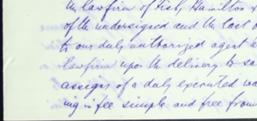 the lawfirm of Kisly, Hamilton &
of the undersigned and the cost o
to our duly authorized agent &
lawfirm upon the delivery to sa
assigns of a duly executed wa
ing in fee simple and free from